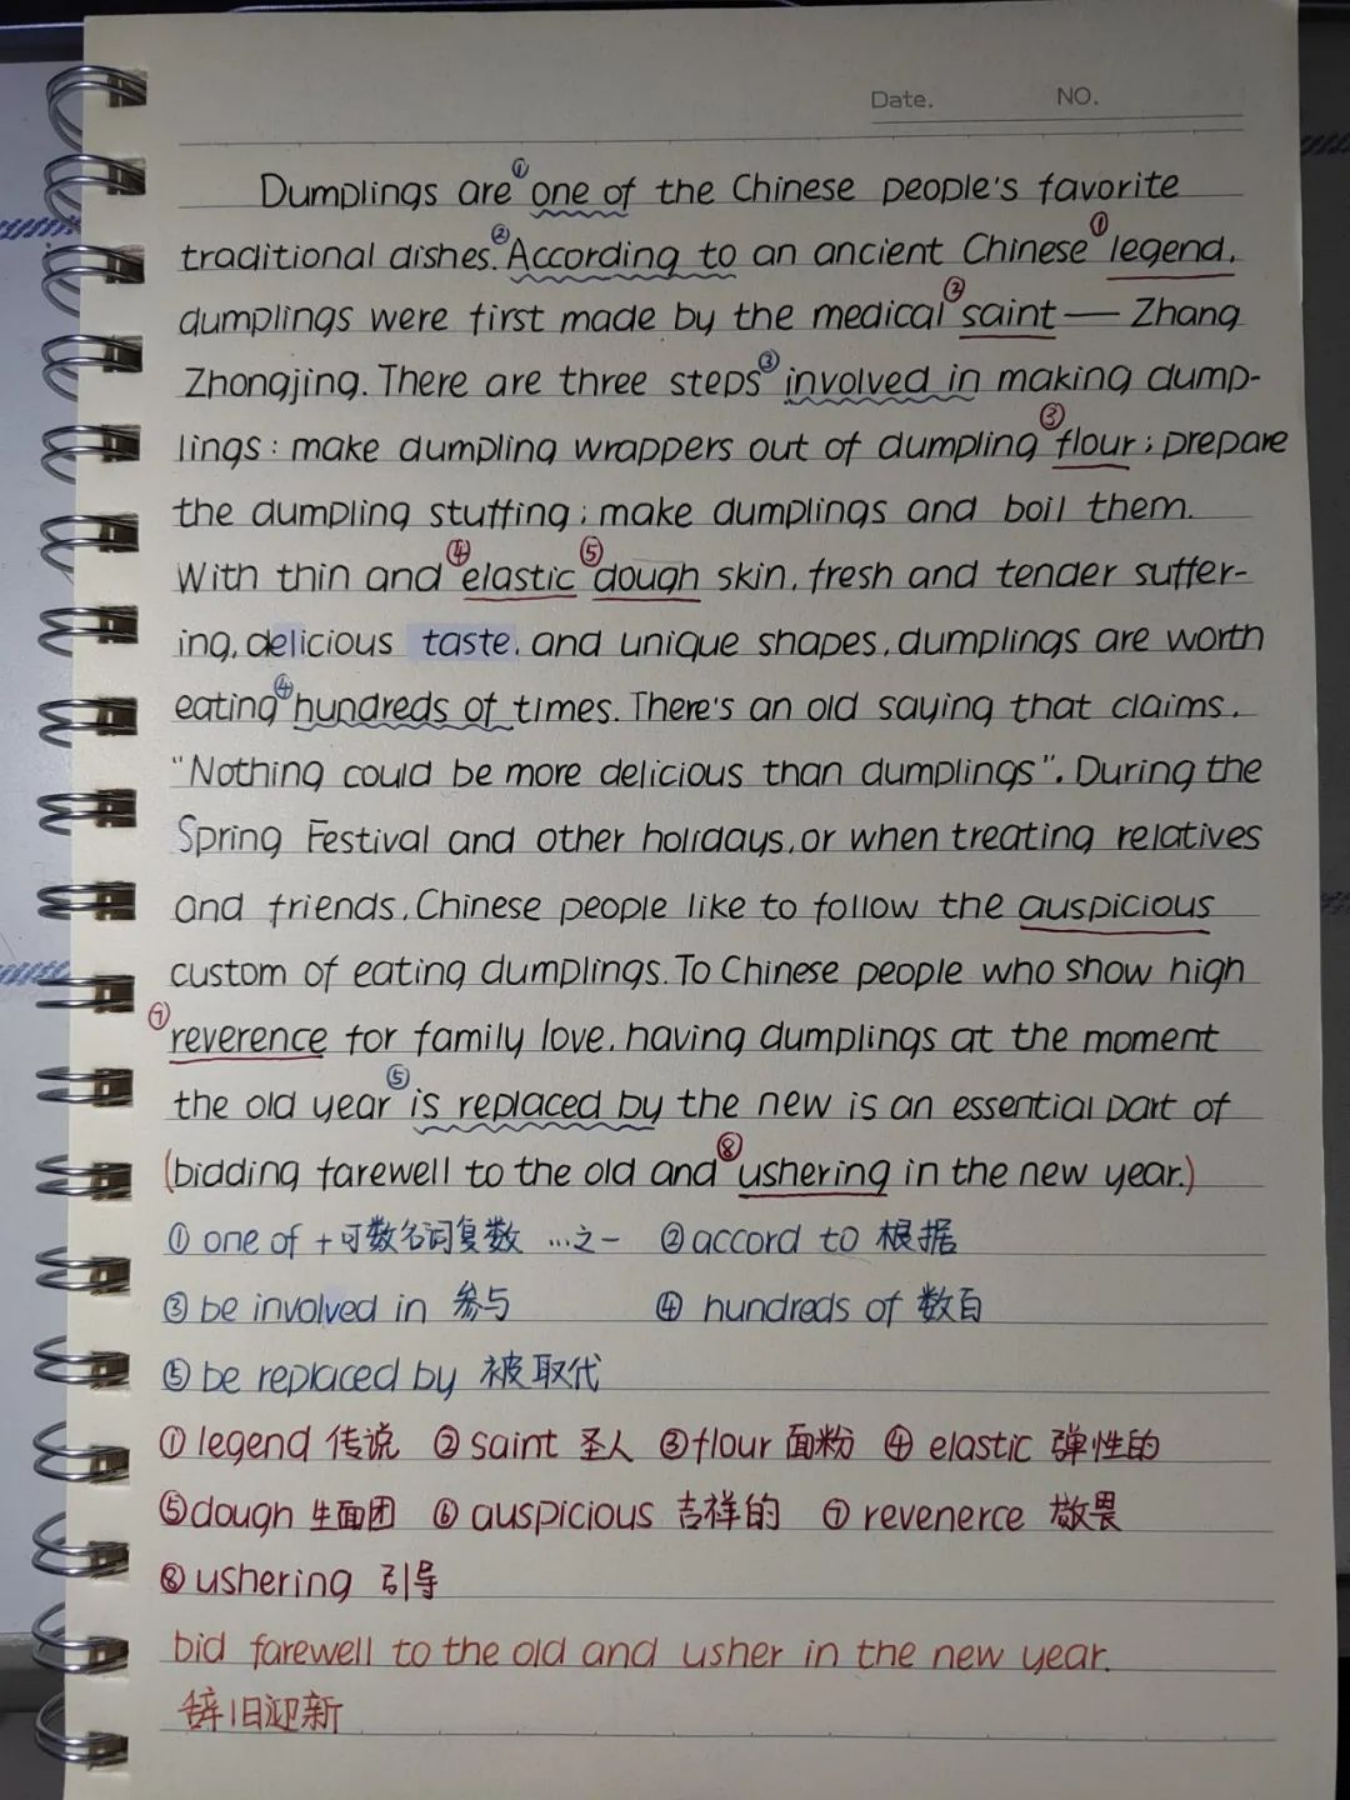 Date. NO.
Dumplings are ①one of the Chinese people's favorite
traditional dishes. ②According to an ancient Chinese ①legend,
dumplings were first made by the medical ②saint — Zhang
Zhongjing. There are three steps ③involved in making dump-
lings: make dumpling wrappers out of dumpling ③flour; prepare
the dumpling stuffing; make dumplings and boil them.
With thin and ④elastic ⑤dough skin, fresh and tender suffer-
ing, delicious taste, and unique shapes, dumplings are worth
eating ④hundreds of times. There's an old saying that claims,
“Nothing could be more delicious than dumplings”. During the
Spring Festival and other holidays, or when treating relatives
and friends, Chinese people like to follow the auspicious
custom of eating dumplings. To Chinese people who show high
⑦reverence for family love, having dumplings at the moment
the old year ⑤is replaced by the new is an essential part of
(bidding farewell to the old and ⑧ushering in the new year.)
① one of + 可数名词复数 …之一 ② accord to 根据
③ be involved in 参与 ④ hundreds of 数百
⑤ be replaced by 被取代
① legend 传说 ② saint 圣人 ③ flour 面粉 ④ elastic 弹性的
⑤ dough 生面团 ⑥ auspicious 吉祥的 ⑦ revenerce 敬畏
⑧ ushering 引导
bid farewell to the old and usher in the new year.
辞旧迎新